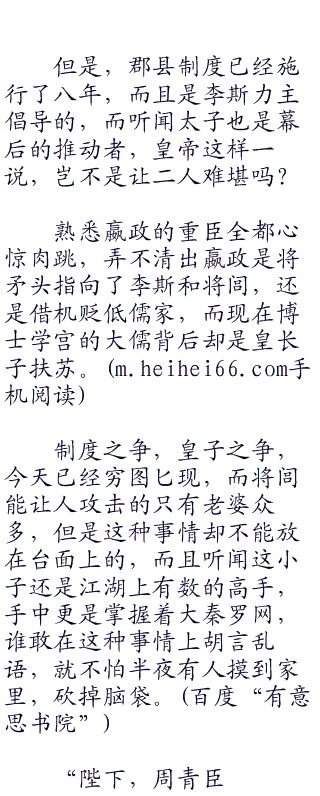 但是，郡县制度已经施
行了八年，而且是李斯力主
倡导的，而听闻太子也是幕
后的推动者，皇帝这样一
说，岂不是让二人难堪吗？
熟悉嬴政的重臣全都心
惊肉跳，弄不清出嬴政是将
矛头指向了李斯和将闾，还
是借机贬低儒家，而现在博
士学宫的大儒背后却是皇长
子扶苏。(m.heihei66.com手
机阅读)
制度之争，皇子之争，
今天已经穷图匕现，而将闾
能让人攻击的只有老婆众
多，但是这种事情却不能放
在台面上的，而且听闻这小
子还是江湖上有数的高手，
手中更是掌握着大秦罗网，
谁敢在这种事情上胡言乱
语，就不怕半夜有人摸到家
里，砍掉脑袋。(百度“有意
思书院”)
“陛下，周青臣